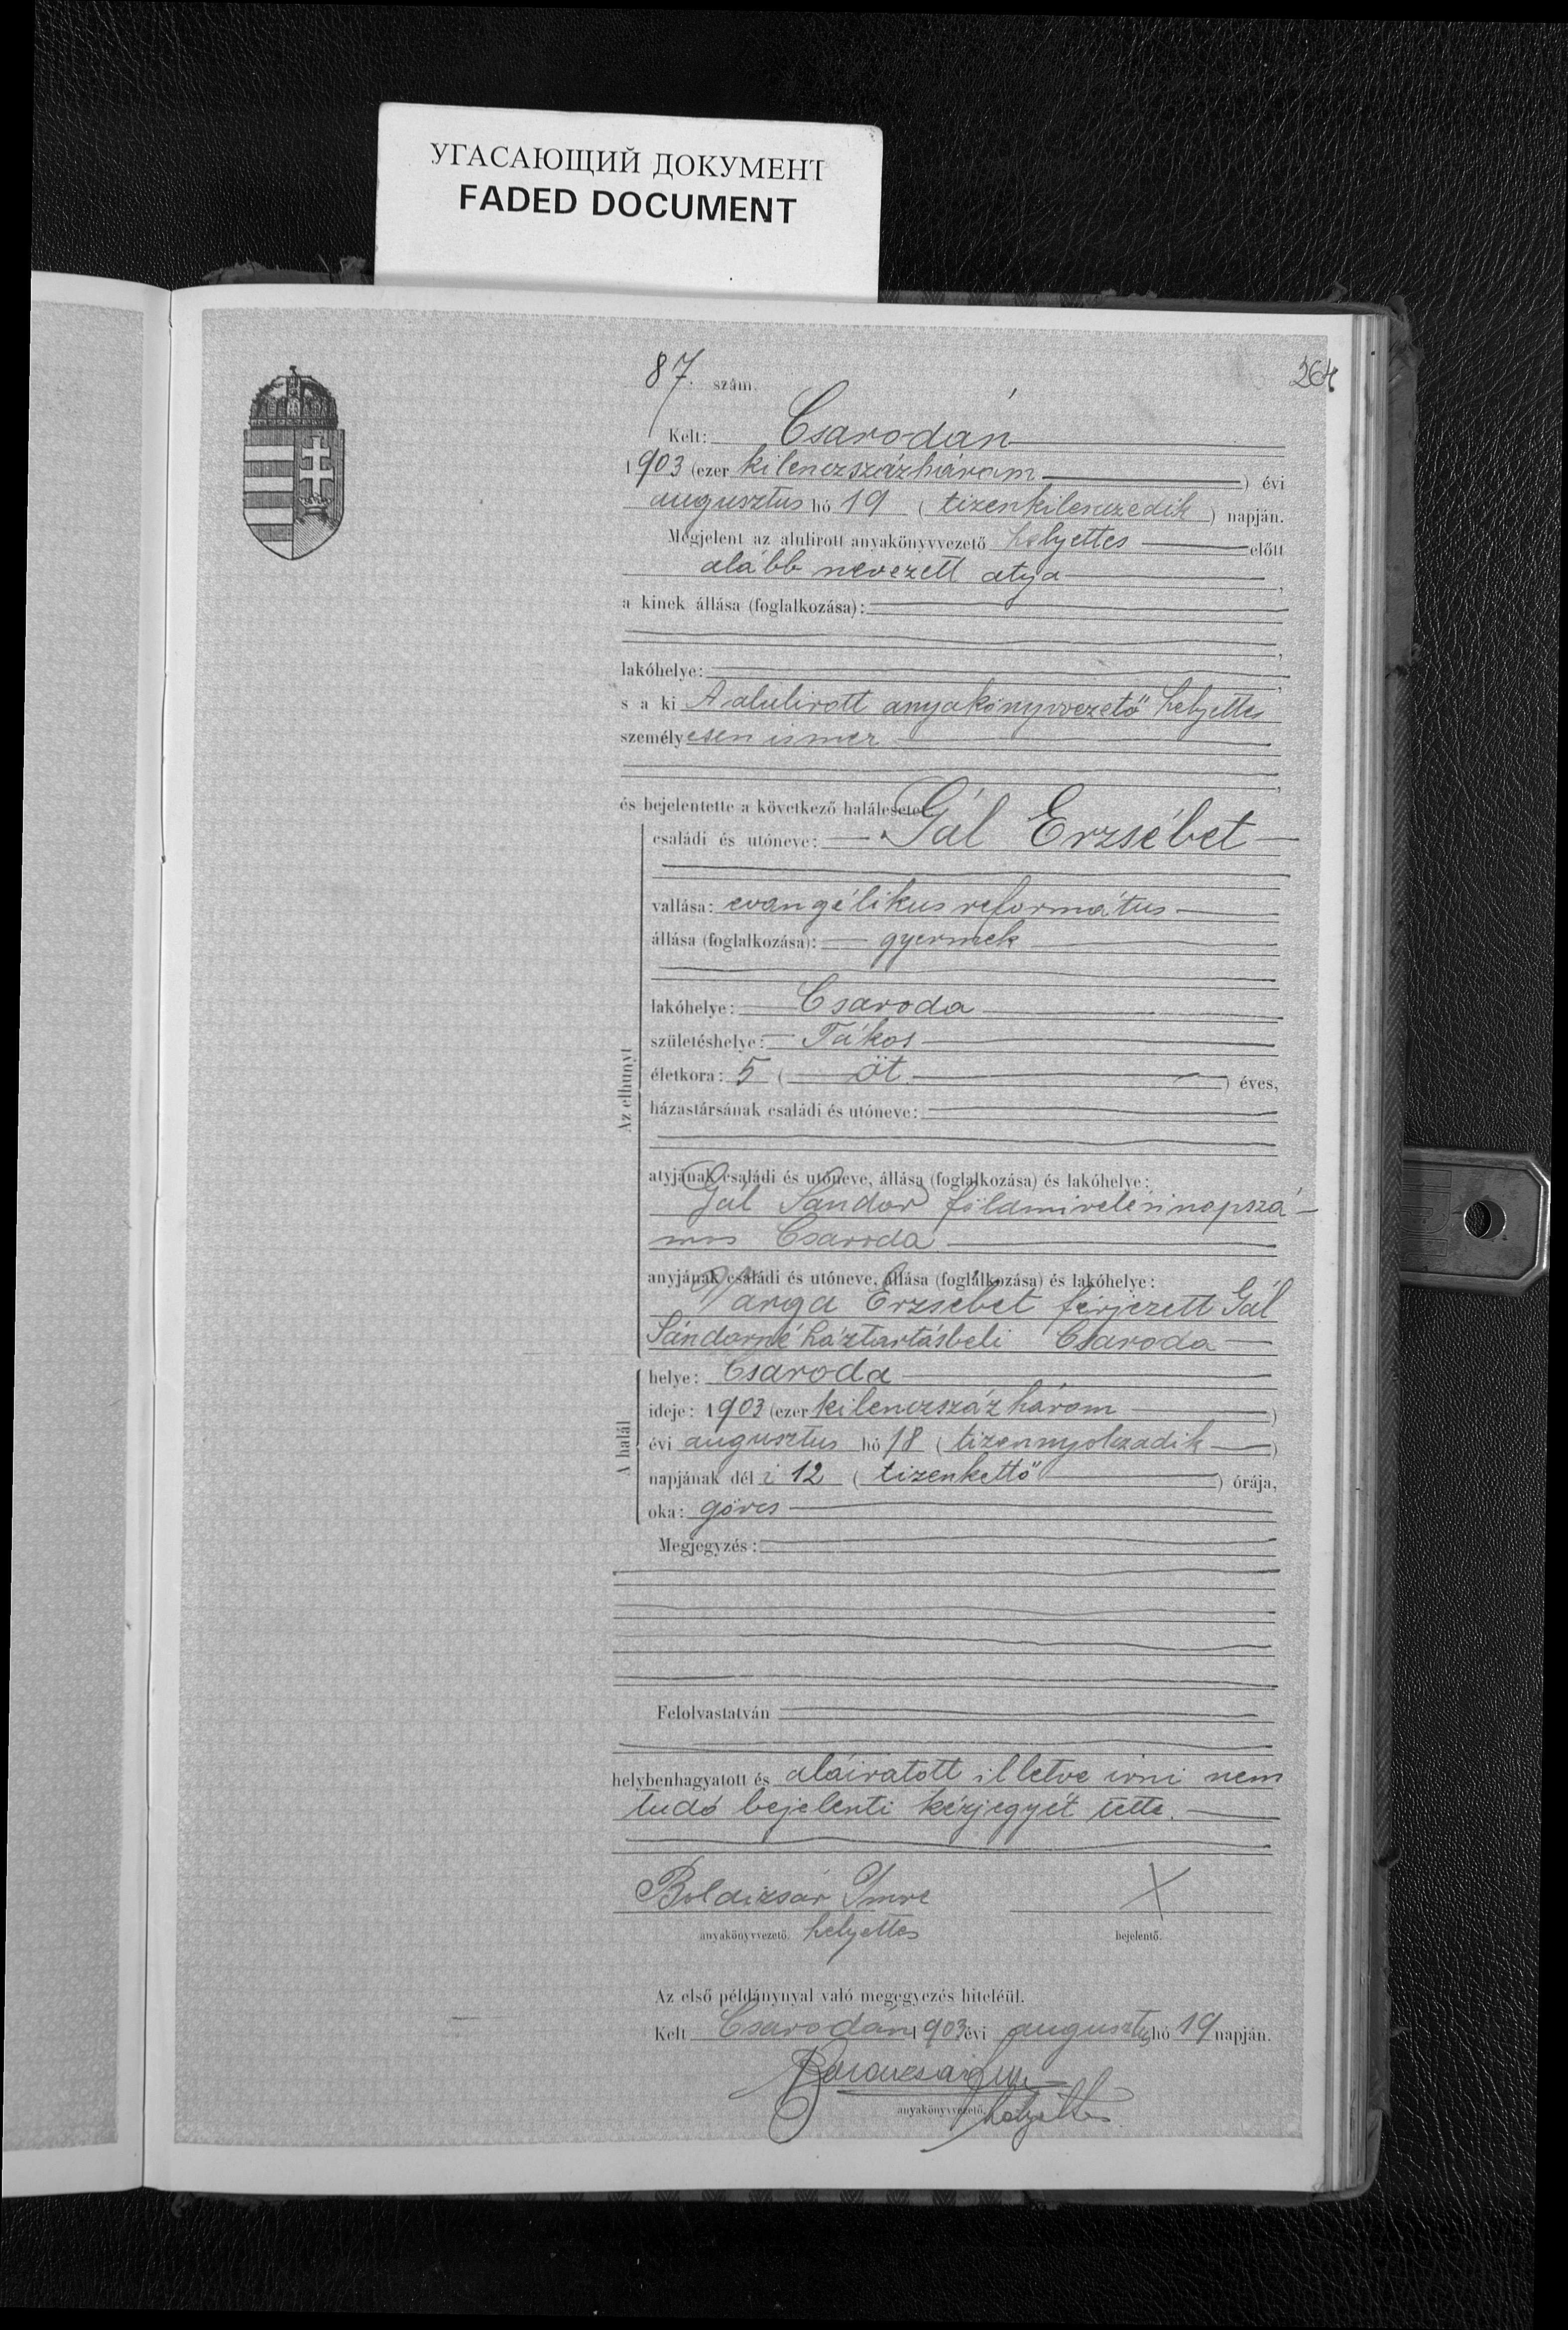 УГАСАЮЩИЙ ДОКУМЕНТ
FADED DOCUMENT
264
87. szám.
Kelt: Csarodán
1903 (ezer kilenczszázhárom) évi
augusztus hó 19 (tizenkilenczedik) napján.
Megjelent az alulirott anyakönyvvezető helyettes előtt
alább nevezett atyja,
a kinek állása (foglalkozása):
lakóhelye:
s a ki Aalulirott anyakönyvvezető helyettes
személyesen ismer
és bejelentette a következő halálesetet
Az elhunyt
családi és utóneve: Gál Erzsébet
vallása: evangélikus református
állása (foglalkozása): gyermek
lakóhelye: Csaroda
születéshelye: Tákos
életkora: 5 (öt) éves,
házastársának családi és utóneve:
atyjának családi és utóneve, állása (foglalkozása) és lakóhelye:
Gál Sándor földmivelésinapszá-
mos Csaroda
anyjának családi és utóneve, állása (foglalkozása) és lakóhelye:
Varga Erzsébet férjezett Gál
Sándorné háztartásbeli Csaroda
A halál
helye: Csaroda
ideje: 1903 (ezer kilenczszáz három)
évi augusztus hó 18 (tizennyolczadik)
napjának dél i 12 (tizenkettő) órája,
oka: görcs
Megjegyzés:
Felolvastatván
helybenhagyatott és aláiratott illetve irni nem
tudó bejelenti kézjegyét tette.
Boldizsár Imre X
anyakönyvvezető. helyettes bejelentő.
Az első példánynyal való megegyezés hiteléül.
Kelt Csarodán 1903 évi augusztus hó 19 napján.
anyakönyvvezető. helyettes